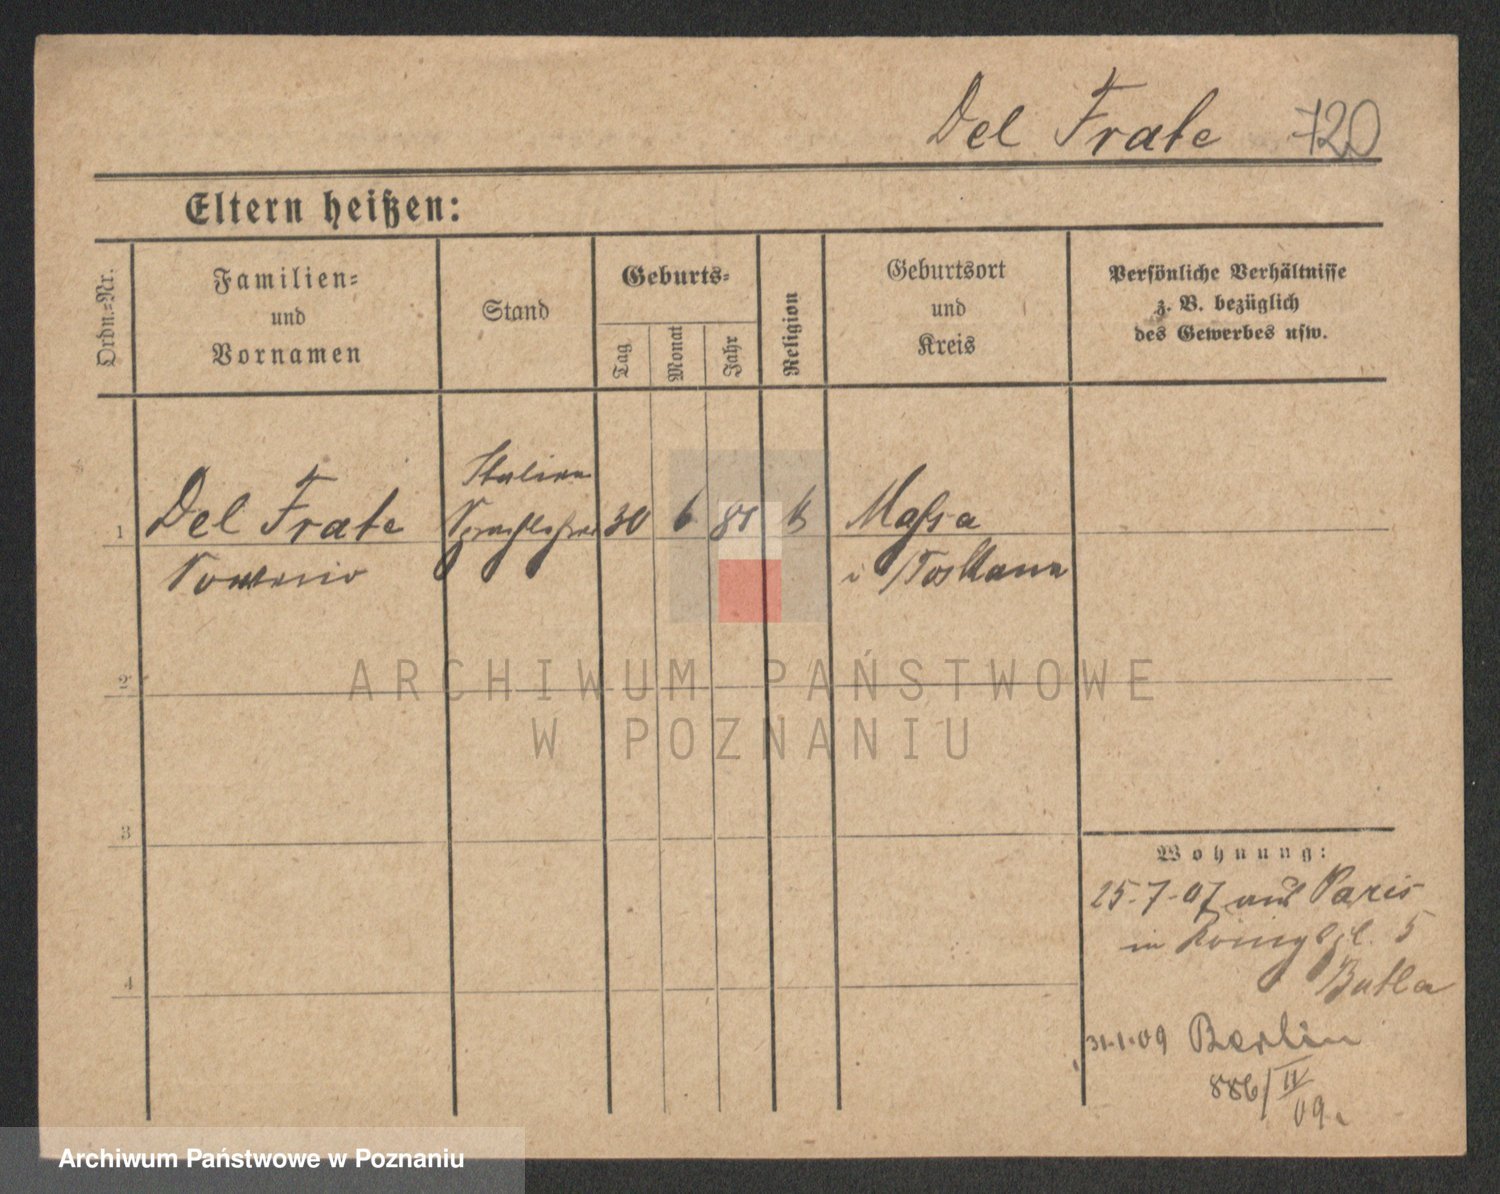 Del Frate 720
Eltern heißen:
Ordn.-Nr.
Familien-
und
Vornamen
Stand
Geburts-
Tag
Monat
Jahr
Religion
Geburtsort
und
Kreis
Persönliche Verhältnisse
z. B. bezüglich
des Gewerbes usw.
1 Del Frate 30 6 81 k Massa
i/Toskana
2
3
4
Wohnung:
25-7-07 aus Paris
in Königspl. 5
31-1-09 Berlin
886/IV
09.
ARCHIWUM PAŃSTWOWE
W POZNANIU
Archiwum Państwowe w Poznaniu